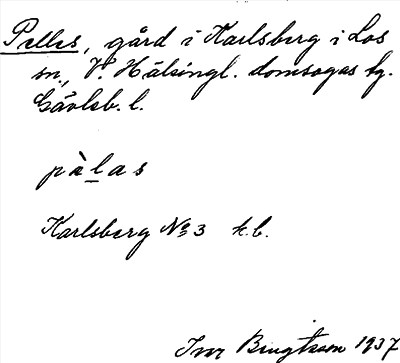 Pelles, gård i Karlsberg i Los
sn., V. Hälsingl. domsagas tg.
Gävleb. l.
pàlas
Karlsberg No 3 k.b.
Ivar Bengtsson 1937